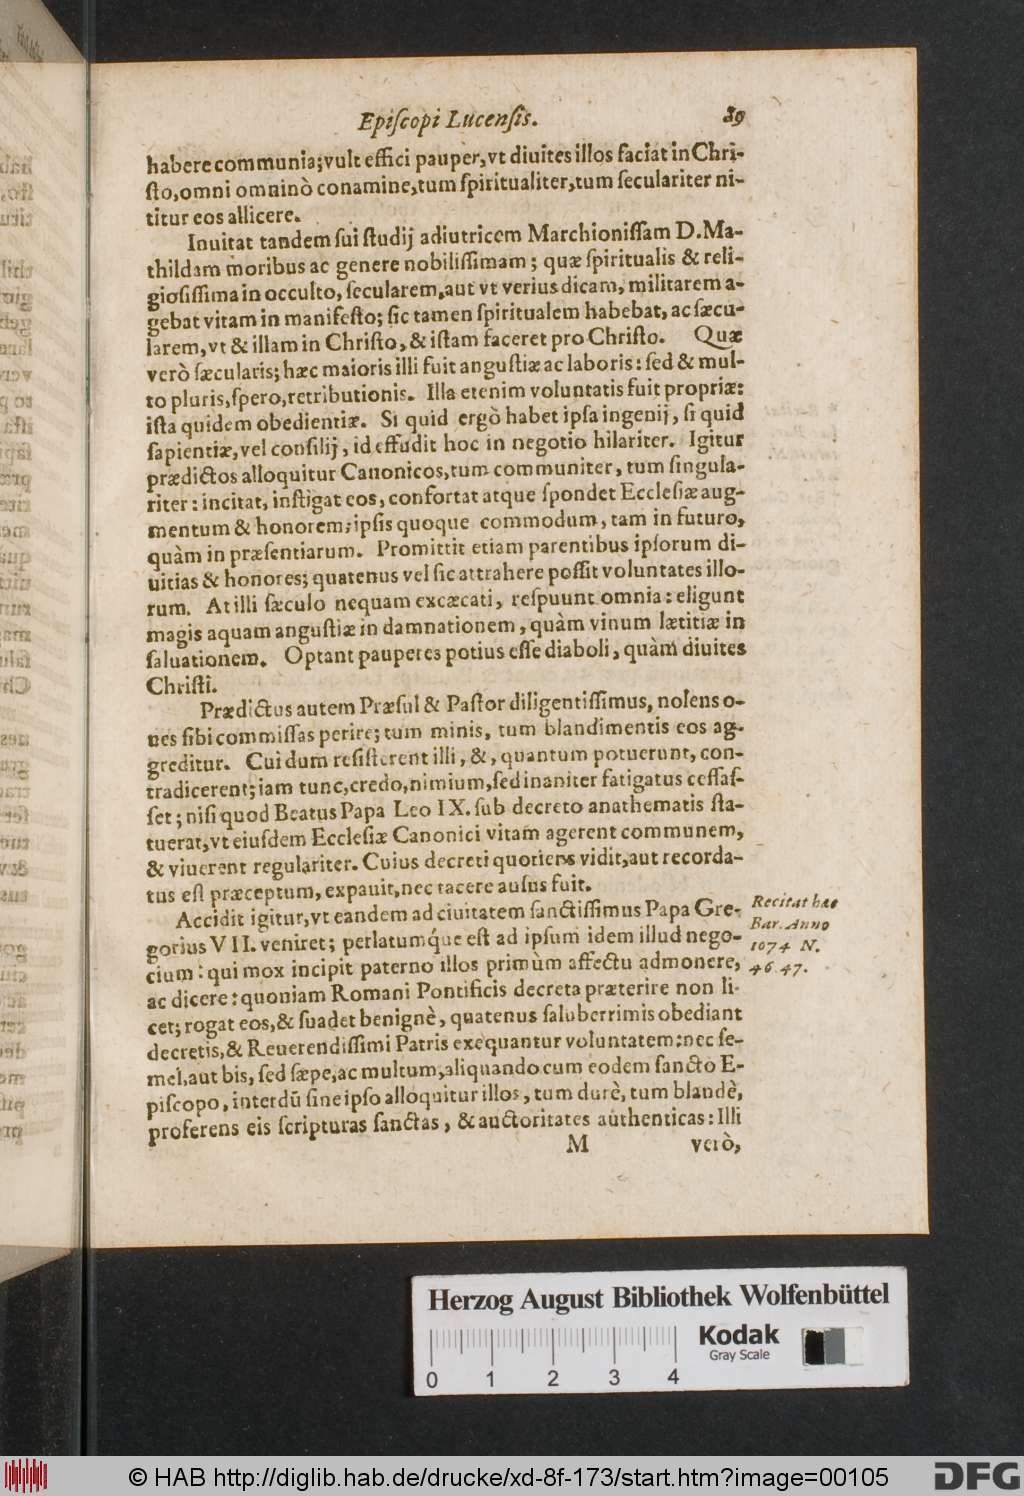 Epiſcopi Lucenſis. 89
habere communia; vult effici pauper, vt diuites illos faciat in Chri-
ſto, omni omninò conamine, tum ſpiritualiter, tum ſeculariter ni-
titur eos allicere.
Inuitat tandem ſui ſtudij adiutricem Marchioniſſam D. Ma-
thildam moribus ac genere nobiliſſimam; quæ ſpiritualis & reli-
gioſiſſima in occulto, ſecularem, aut vt verius dicam, militarem a-
gebat vitam in manifeſto; ſic tamen ſpiritualem habebat, ac ſæcu-
larem, vt & illam in Chriſto, & iſtam faceret pro Chriſto. Quæ
verò ſæcularis; hæc maioris illi fuit anguſtiæ ac laboris: ſed & mul-
to pluris, ſpero, retributionis. Illa etenim voluntatis fuit propriæ:
iſta quidem obedientiæ. Si quid ergò habet ipſa ingenij, ſi quid
ſapientiæ, vel conſilij, id effudit hoc in negotio hilariter. Igitur
prædictos alloquitur Canonicos, tum communiter, tum ſingula-
riter: incitat, inſtigat eos, confortat atque ſpondet Eccleſiæ aug-
mentum & honorem; ipſis quoque commodum, tam in futuro,
quàm in præſentiarum. Promittit etiam parentibus ipſorum di-
uitias & honores; quatenus vel ſic attrahere poſſit voluntates illo-
rum. At illi ſæculo nequam excæcati, reſpuunt omnia: eligunt
magis aquam anguſtiæ in damnationem, quàm vinum lætitiæ in
ſaluationem. Optant pauperes potius eſſe diaboli, quàm diuites
Chriſti.
Prædictus autem Præſul & Paſtor diligentiſſimus, nolens o-
ues ſibi commiſſas perire; tum minis, tum blandimentis eos ag-
greditur. Cui dum reſiſterent illi, &, quantum potuerunt, con-
tradicerent; iam tunc, credo, nimium, ſed inaniter fatigatus ceſſaſ-
ſet; niſi quod Beatus Papa Leo IX. ſub decreto anathematis ſta-
tuerat, vt eiuſdem Eccleſiæ Canonici vitam agerent communem,
& viuerent regulariter. Cuius decreti quotiens vidit, aut recorda-
tus eſt præceptum, expauit, nec tacere auſus fuit.
Accidit igitur, vt eandem ad ciuitatem ſanctiſſimus Papa Gre-
gorius VII. veniret; perlatumq́ue eſt ad ipſum idem illud nego-
cium: qui mox incipit paterno illos primùm affectu admonere,
ac dicere: quoniam Romani Pontificis decreta præterire non li-
cet; rogat eos, & ſuadet benignè, quatenus ſaluberrimis obediant
decretis, & Reuerendiſſimi Patris exequantur voluntatem: nec ſe-
mel, aut bis, ſed ſæpe, ac multum, aliquando cum eodem ſancto E-
piſcopo, interdū ſine ipſo alloquitur illos, tum durè, tum blandè,
proferens eis ſcripturas ſanctas, & auctoritates authenticas: Illi
M verò,
Recitat hæc
Bar. Anno
1074 N.
46. 47.
Herzog August Bibliothek Wolfenbüttel
Kodak
Gray Scale
0 1 2 3 4
© HAB http://diglib.hab.de/drucke/xd-8f-173/start.htm?image=00105
DFG